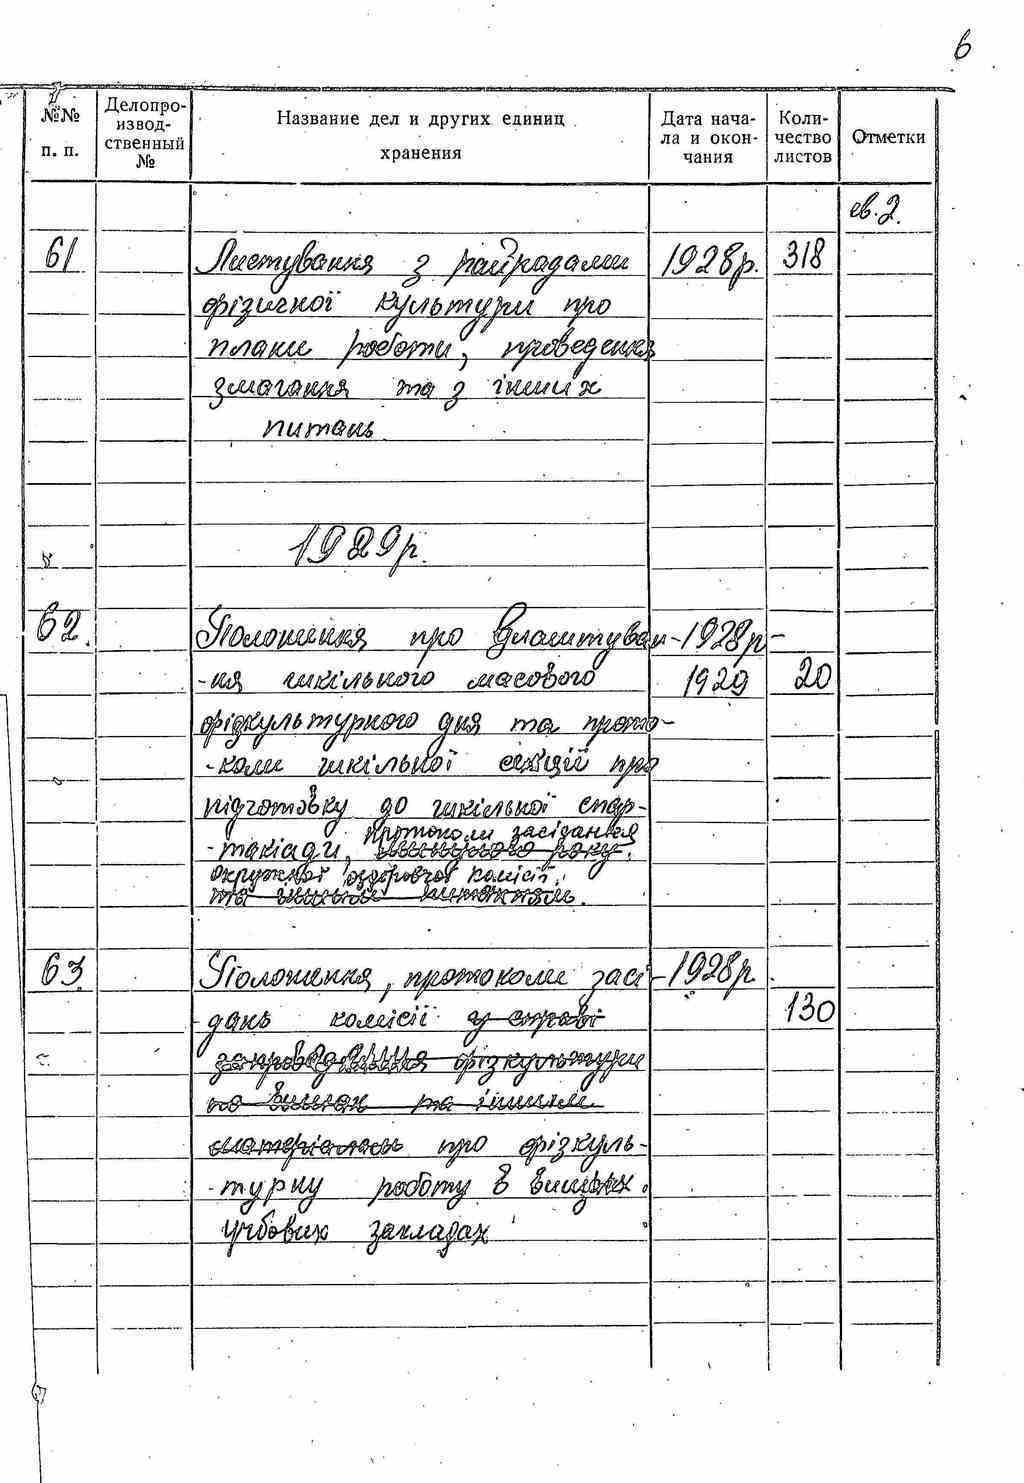 6
№№ п. п.
Делопро-
извод-
ственный
№
Название дел и других единиц
хранения
Дата нача-
ла и окон-
чания
Коли-
чество
листов
Отметки
св. 2.
61 Листування з райрадами 1928р. 318
фізичної культури про
плани роботи, проведення
змагання та з інших
питань
1929р.
62. Положення про влаштуван- 1928р-
-ня шкільного масового 1929 20
фізкультурного дня та прото-
-коли шкільної секції про
підготовку до шкільної спар-
протоколи засідання
-такіади, року.
окружної оздоровчої комісії.
та
63. Положення, протоколи засі- 1928р.
дань комісії у справі 130
запровадження фізкультури
по вишах та іншим
матеріалам про фізкуль-
-турну роботу в вищих
учбових закладах